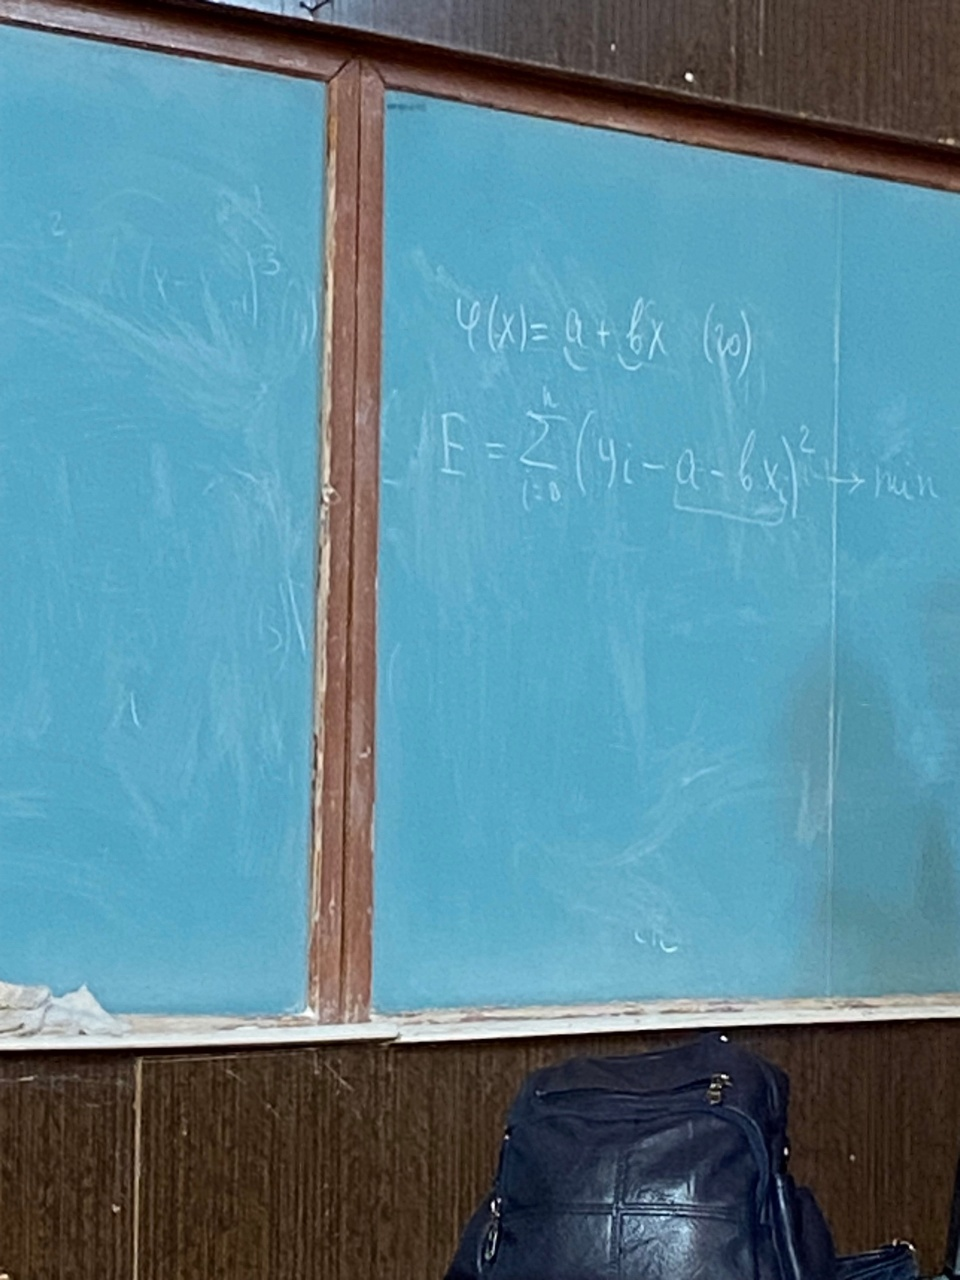 φ(x) = a + bx (20)
E = ∑_{i=0}^{n} (yi - a - bx_i)² → min